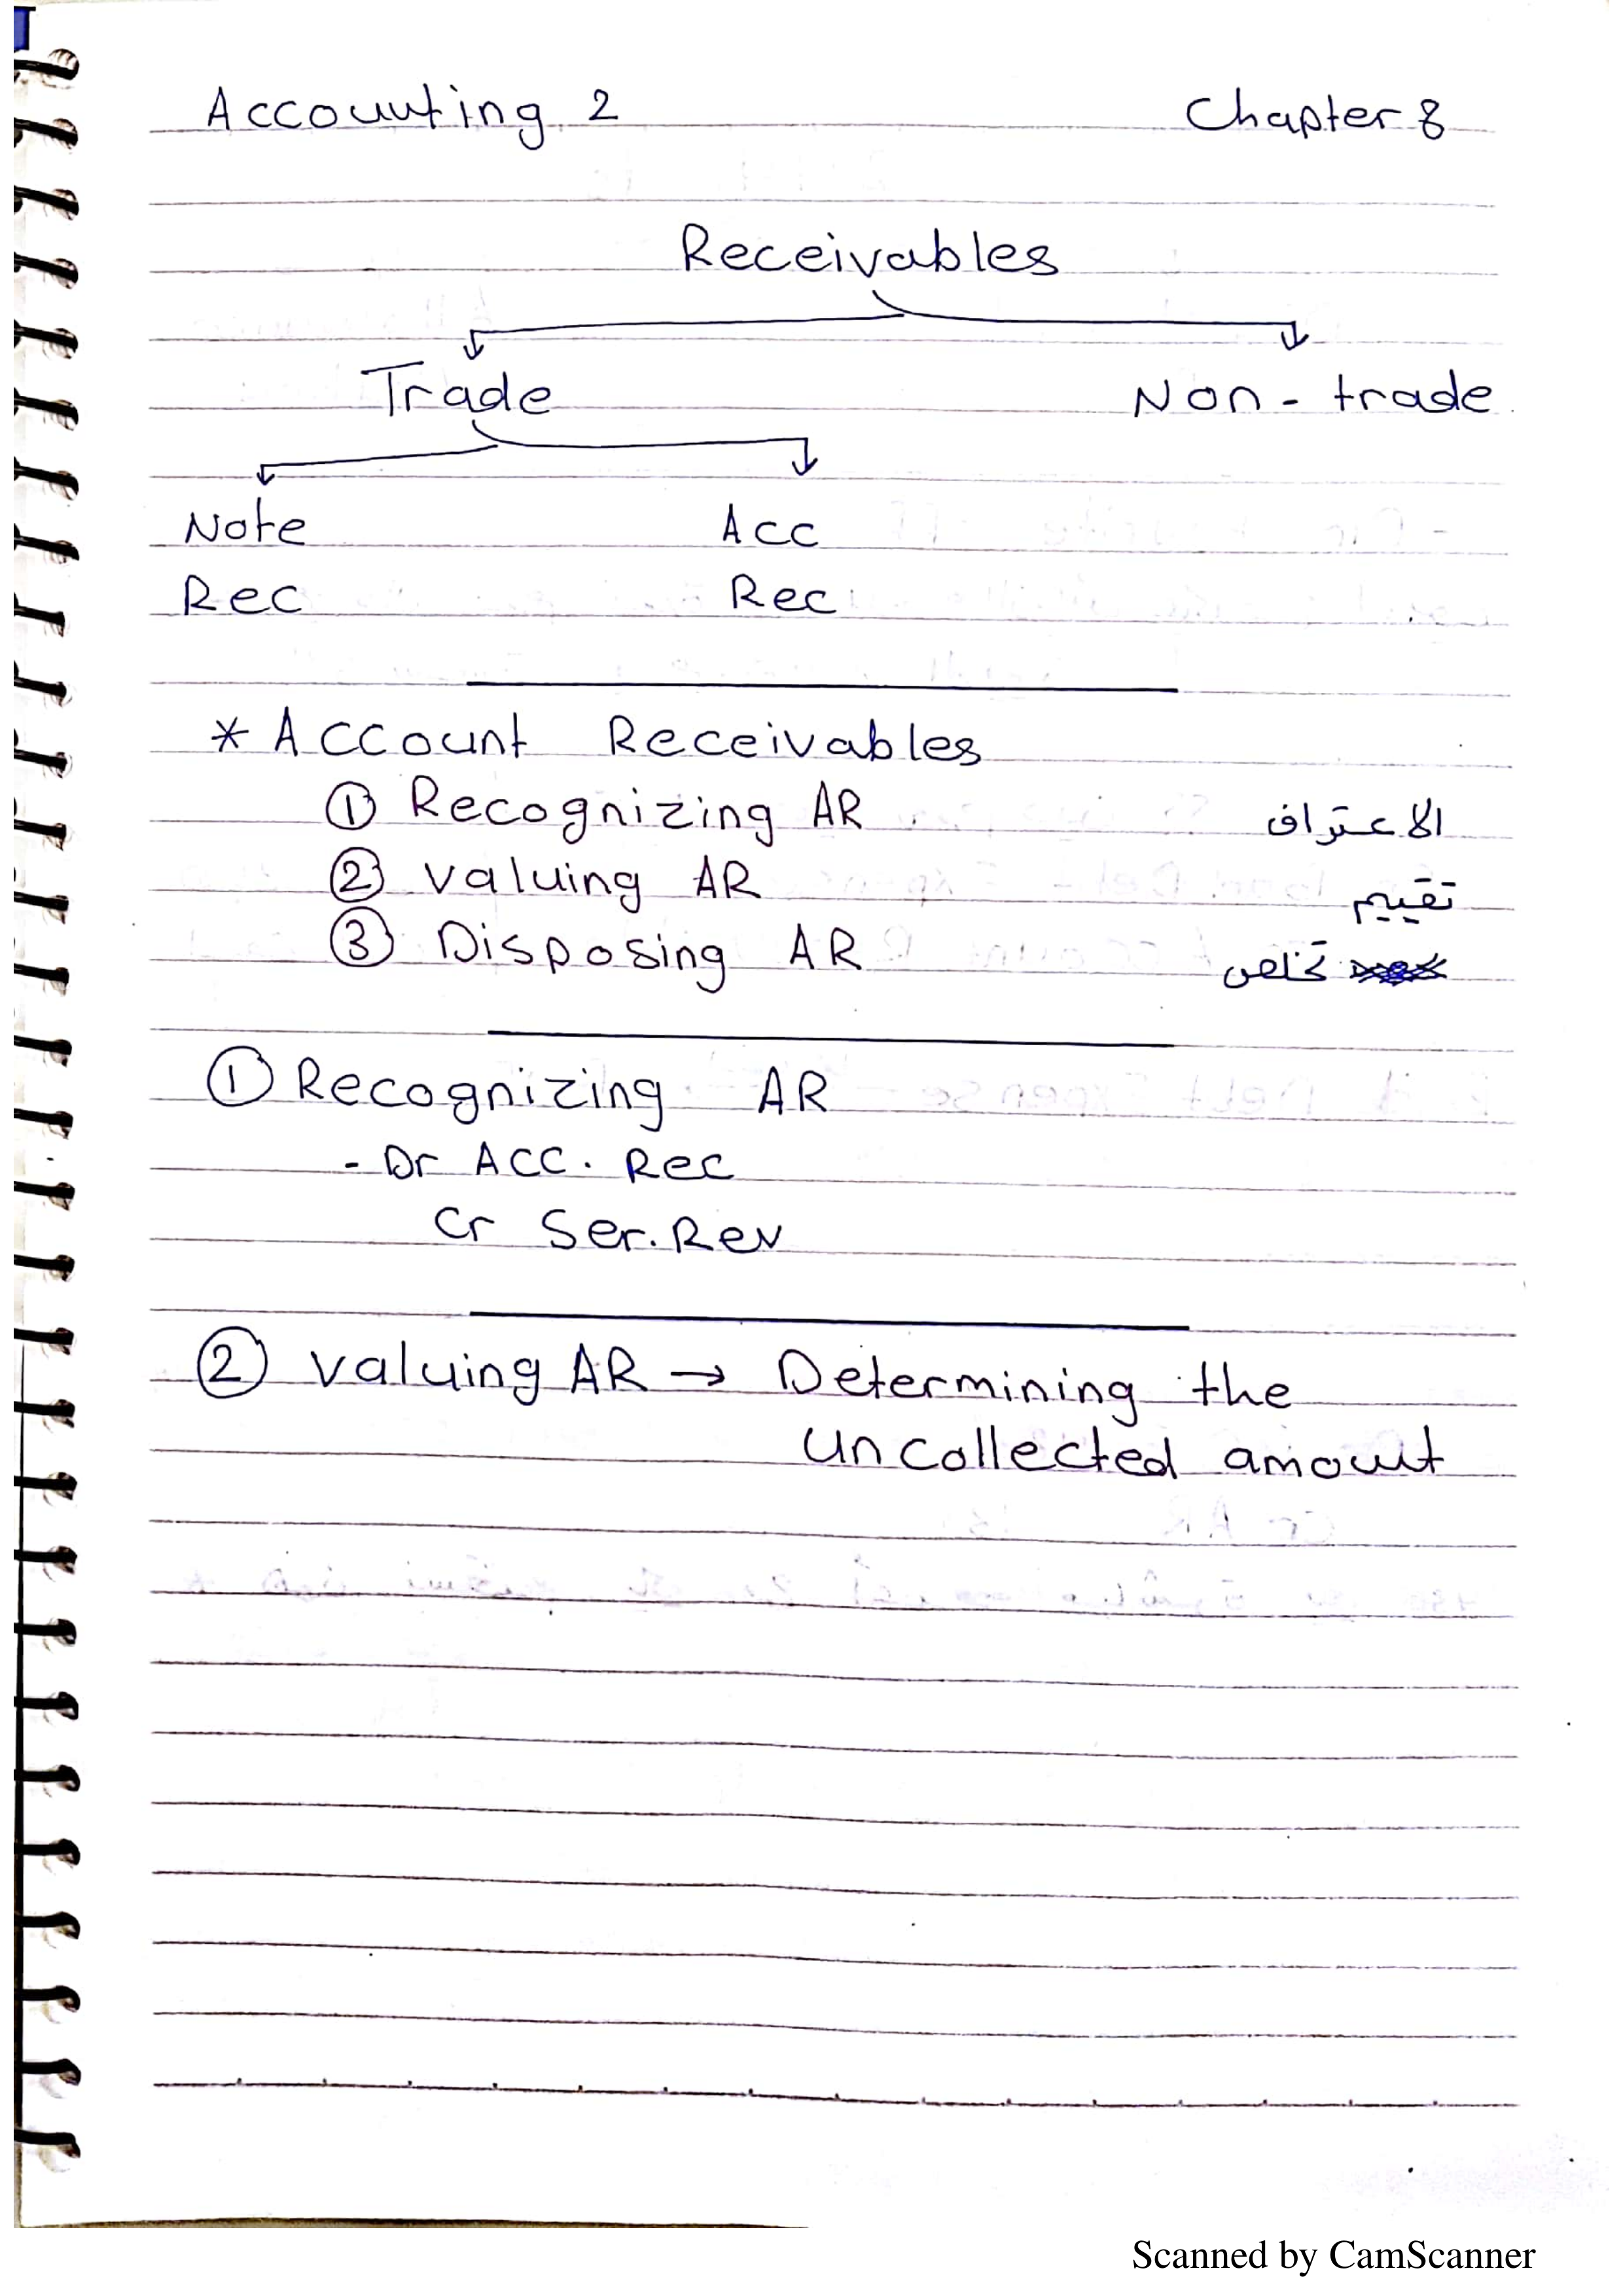 Accounting 2 Chapter 8
Receivables
Trade Non-trade
Note Acc
Rec Rec
* Account Receivables
① Recognizing AR الاعتراف
② Valuing AR تقييم
③ Disposing AR تخلص
① Recognizing AR
- Dr Acc. Rec
Cr Ser. Rev
② Valuing AR → Determining the
uncollected amount
Scanned by CamScanner